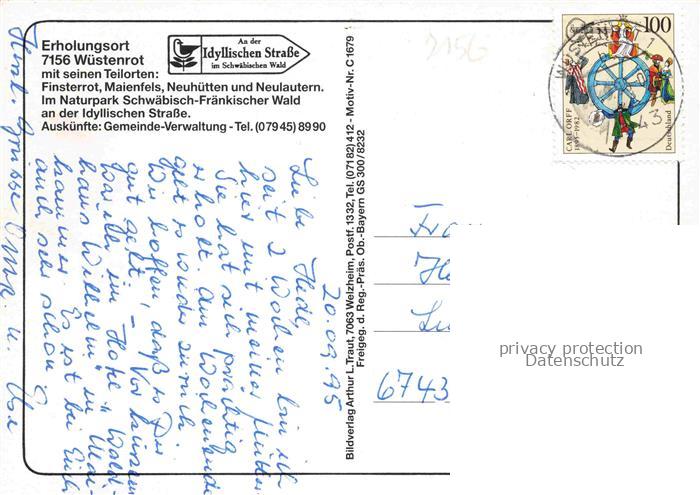 Erholungsort
7156 Wüstenrot
mit seinen Teilorten:
Finsterrot, Maienfels, Neuhütten und Neulautern.
Im Naturpark Schwäbisch-Fränkischer Wald
an der Idyllischen Straße.
Auskünfte: Gemeinde-Verwaltung - Tel. (07945) 8990
An der
Idyllischen Straße
im Schwäbischen Wald
7156
100
CARL ORFF
1895-1982
Deutschland
WÜSTENROT
Bildverlag Arthur L. Traut, 7063 Welzheim, Postf. 1332, Tel. (07182) 412 - Motiv-Nr. C 1679
Freigeg. d. Reg.-Präs. Ob.-Bayern GS 300/8232
20.09.95
Liebe Hedi,
seit 2 Wochen bin ich
hier mit meiner Mutter
Sie hat sich prächtig
erholt. Am Wochenende
geht es wieder zurück
Wir hoffen, daß es Dir
gut geht, - Vor kurzem
war ich im Hotel "Wald-
haus Wilhelm" in
Es ist bei Euch
auch sehr schön.
Herzl. Grüsse u.
Fr
He
Lu
6743
privacy protection
Datenschutz